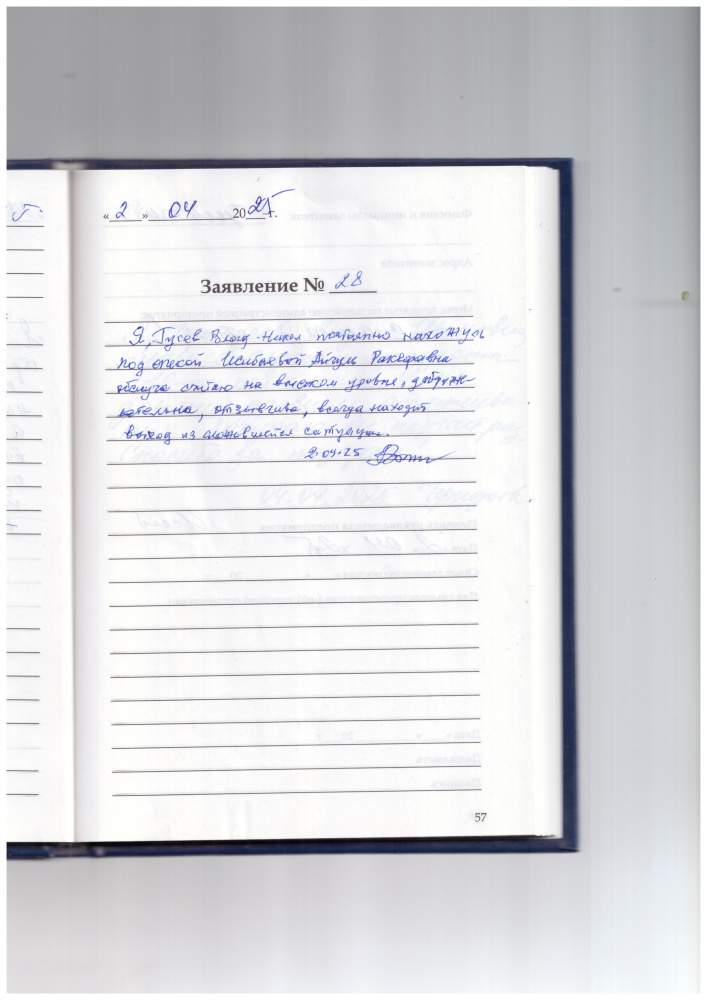 « 2 » 04 2025 г.
Заявление № 28
Я, Гусев Влад. Никол постоянно нахожусь
под опекой Исибаевой Айгуль
обслугу считаю на высоком уровне, доброж-
елательна, отзывчива, всегда находит
выход из сложившейся ситуации.
2.04.25
57